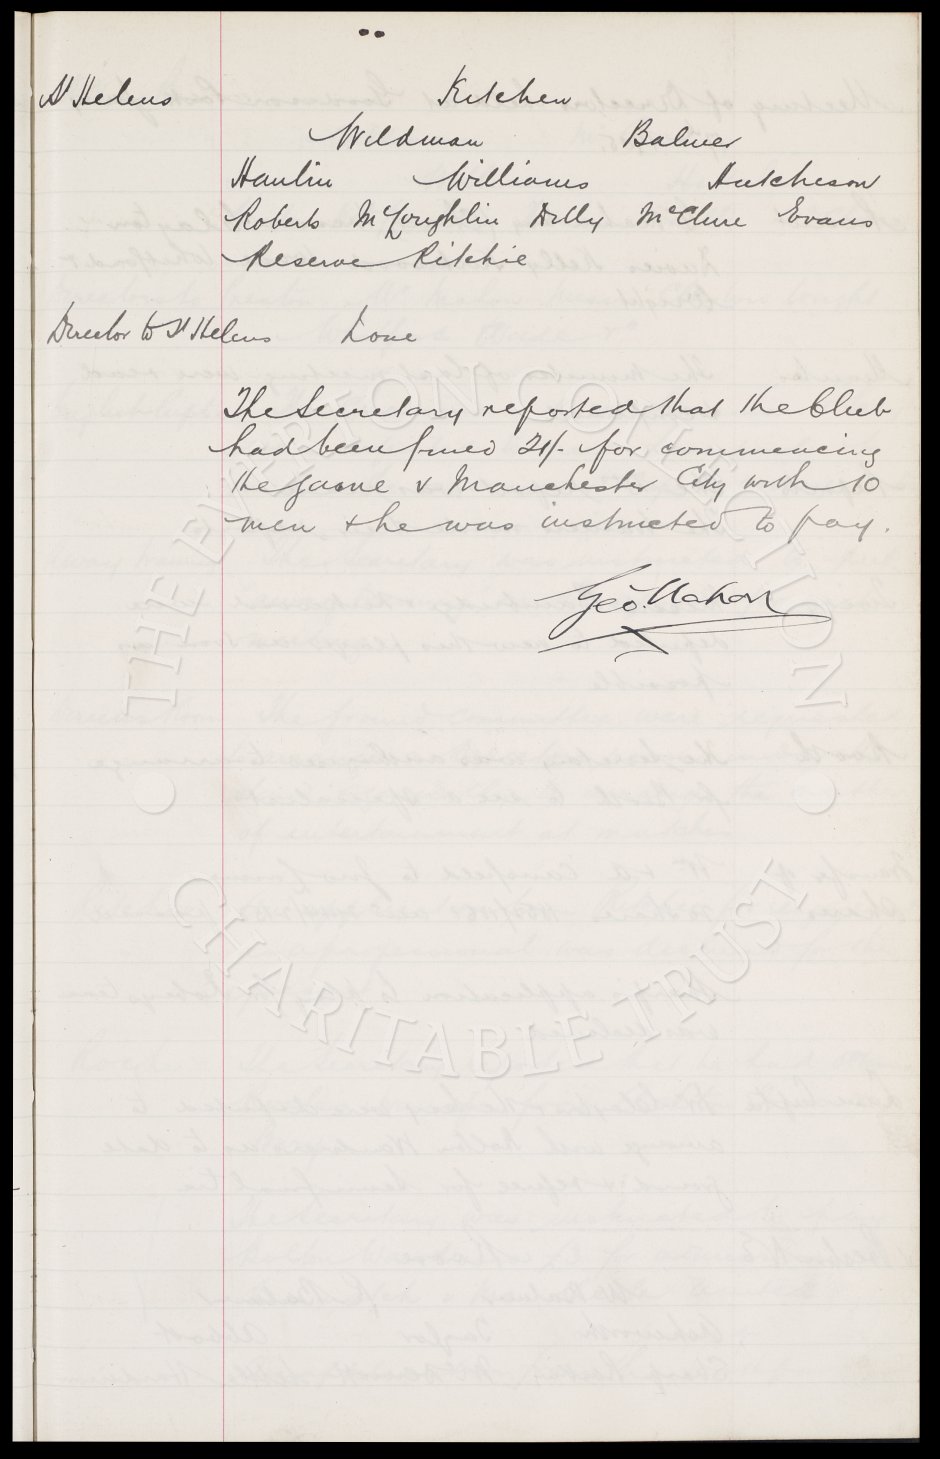 St Helens Kitchen
Wildman Balmer
Hanlin Williams Hutcheson
Roberts McLoughlin Dilly McClure Evans
Reserve Ritchie
Director to St Helens Lowe
The Secretary reported that the Club
had been fined 21/- for commencing
the game v Manchester City with 10
men & he was instructed to pay.
Geo. Mahon
THE EVERTON COLLECTION
CHARITABLE TRUST